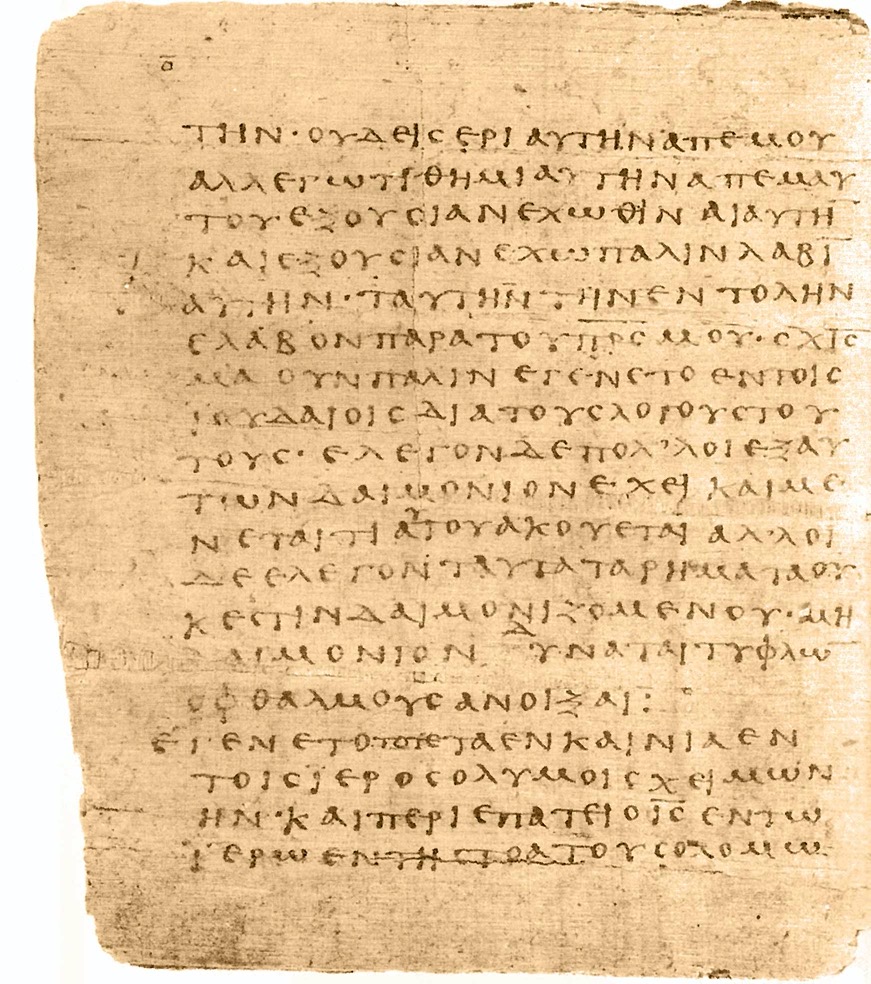 ō
ΤΗΝ · ΟΥΔΕΙϹ ΕΡΙ ΑΥΤΗΝ ΑΠ ΕΜΟΥ
ΑΛΛ ΕΓΩ ΤΙΘΗΜΙ ΑΥΤΗΝ ΑΠ ΕΜΑΥ
ΤΟΥ · ΕΞΟΥϹΙΑΝ ΕΧΩ ΘΙΝΑΙ ΑΥΤΗ̅
ΚΑΙ ΕΞΟΥϹΙΑΝ ΕΧΩ ΠΑΛΙΝ ΛΑΒΙ̅
ΑΥΤΗΝ · ΤΑΥΤΗΝ ΤΗΝ ΕΝΤΟΛΗΝ
ΕΛΑΒΟΝ ΠΑΡΑ ΤΟΥ Π̅Ρ̅Ϲ̅ ΜΟΥ · ϹΧΙϹ
ΜΑ ΟΥΝ ΠΑΛΙΝ ΕΓΕΝΕΤΟ ΕΝ ΤΟΙϹ
ΙΟΥΔΑΙΟΙϹ ΔΙΑ ΤΟΥϹ ΛΟΓΟΥϹ ΤΟΥ
ΤΟΥϹ · ΕΛΕΓΟΝ ΔΕ ΠΟΛ᾿ΛΟΙ ΕΞ ΑΥ
ΤΩΝ ΔΑΙΜΟΝΙΟΝ ΕΧΕΙ ΚΑΙ ΜΕ
ΝΕΤΑΙ ΤΙ ΑΥΤΟΥ ΑΚΟΥΕΤΑΙ ΑΛ᾿ΛΟΙ
ΔΕ ΕΛΕΓΟΝ ΤΑΥΤΑ ΤΑ ΡΗΜΑΤΑ ΟΥ
Κ ΕϹΤΙΝ ΔΑΙΜΟΝΙΖΟΜΕΝΟΥ · ΜΗ
ΔΑΙΜΟΝΙΟΝ ΔΥΝΑΤΑΙ ΤΥΦΛΩ̅
ΟΦΘΑΛΜΟΥϹ ΑΝΟΙΞΑΙ :
ΕΓΕΝΕΤΟ ΤΑ ΕΝΚΑΙΝΙΑ ΕΝ
ΤΟΙϹ ΙΕΡΟϹΟΛΥΜΟΙϹ ΧΕΙΜΩΝ
ΗΝ · ΚΑΙ ΠΕΡΙΕΠΑΤΕΙ Ο Ι̅Ϲ̅ ΕΝ ΤΩ
ΙΕΡΩ ΕΝ ΤΗ ϹΤΟΑ ΤΟΥ ϹΟΛΟΜΩ